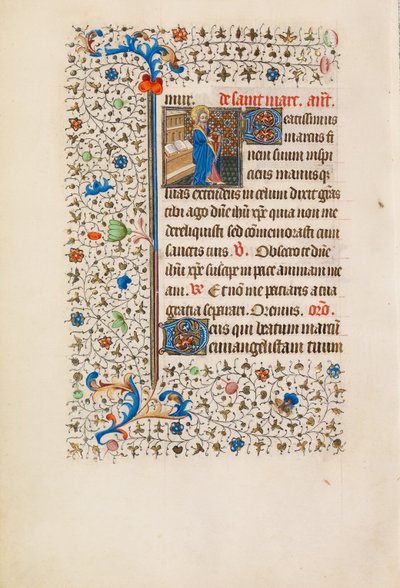 mur. de saint marc. ant.
Beatissimus
marcus fi
nem suum inspi
ciens manusq
suas extendens in celum dixit gr̄as
tibi ago dn̄e ih̄u xp̄e quia non me
dereliquisti sed conmemorasti cum
sanctis tuis. V̄. Obsecro te dn̄e
ih̄u xp̄e suscipe in pace animam me
am. R̄. Et nō me peccaris a tua
gratia separari. Oremus. orō.
Deus qui beatum marcū
euuangelistam tuum